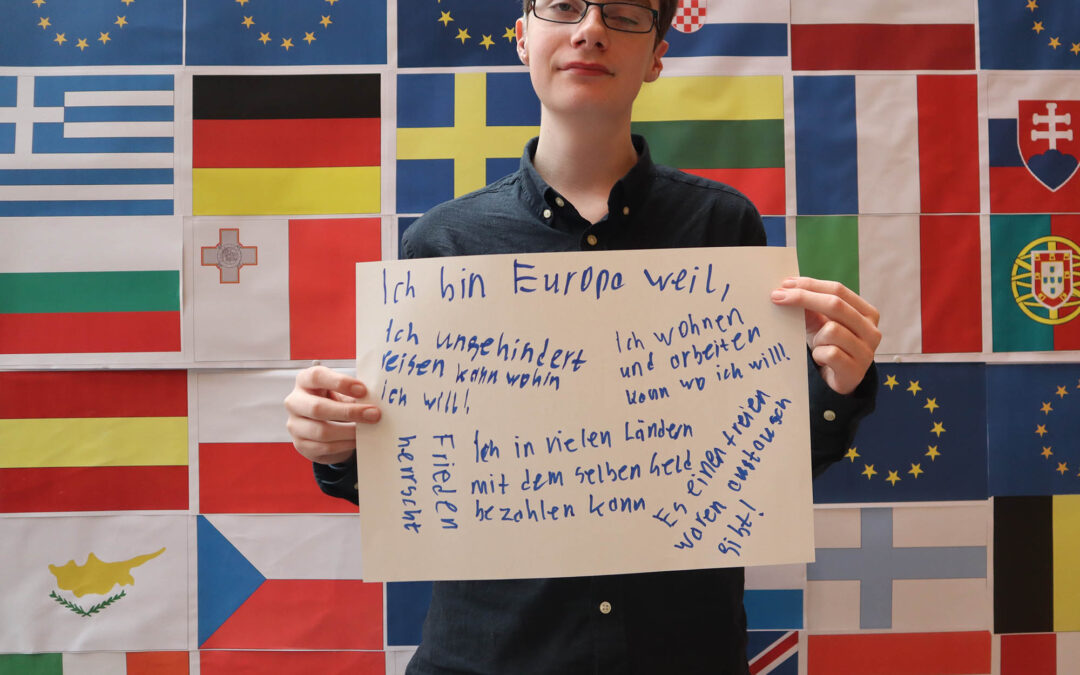 Ich bin Europa weil,
Ich ungehindert
reisen kann wohin
ich will!
Ich wohnen
und arbeiten
kann wo ich will!
Frieden
herrscht
Ich in vielen Ländern
mit dem selben Geld
bezahlen kann
Es einen freien
waren austausch
gibt!